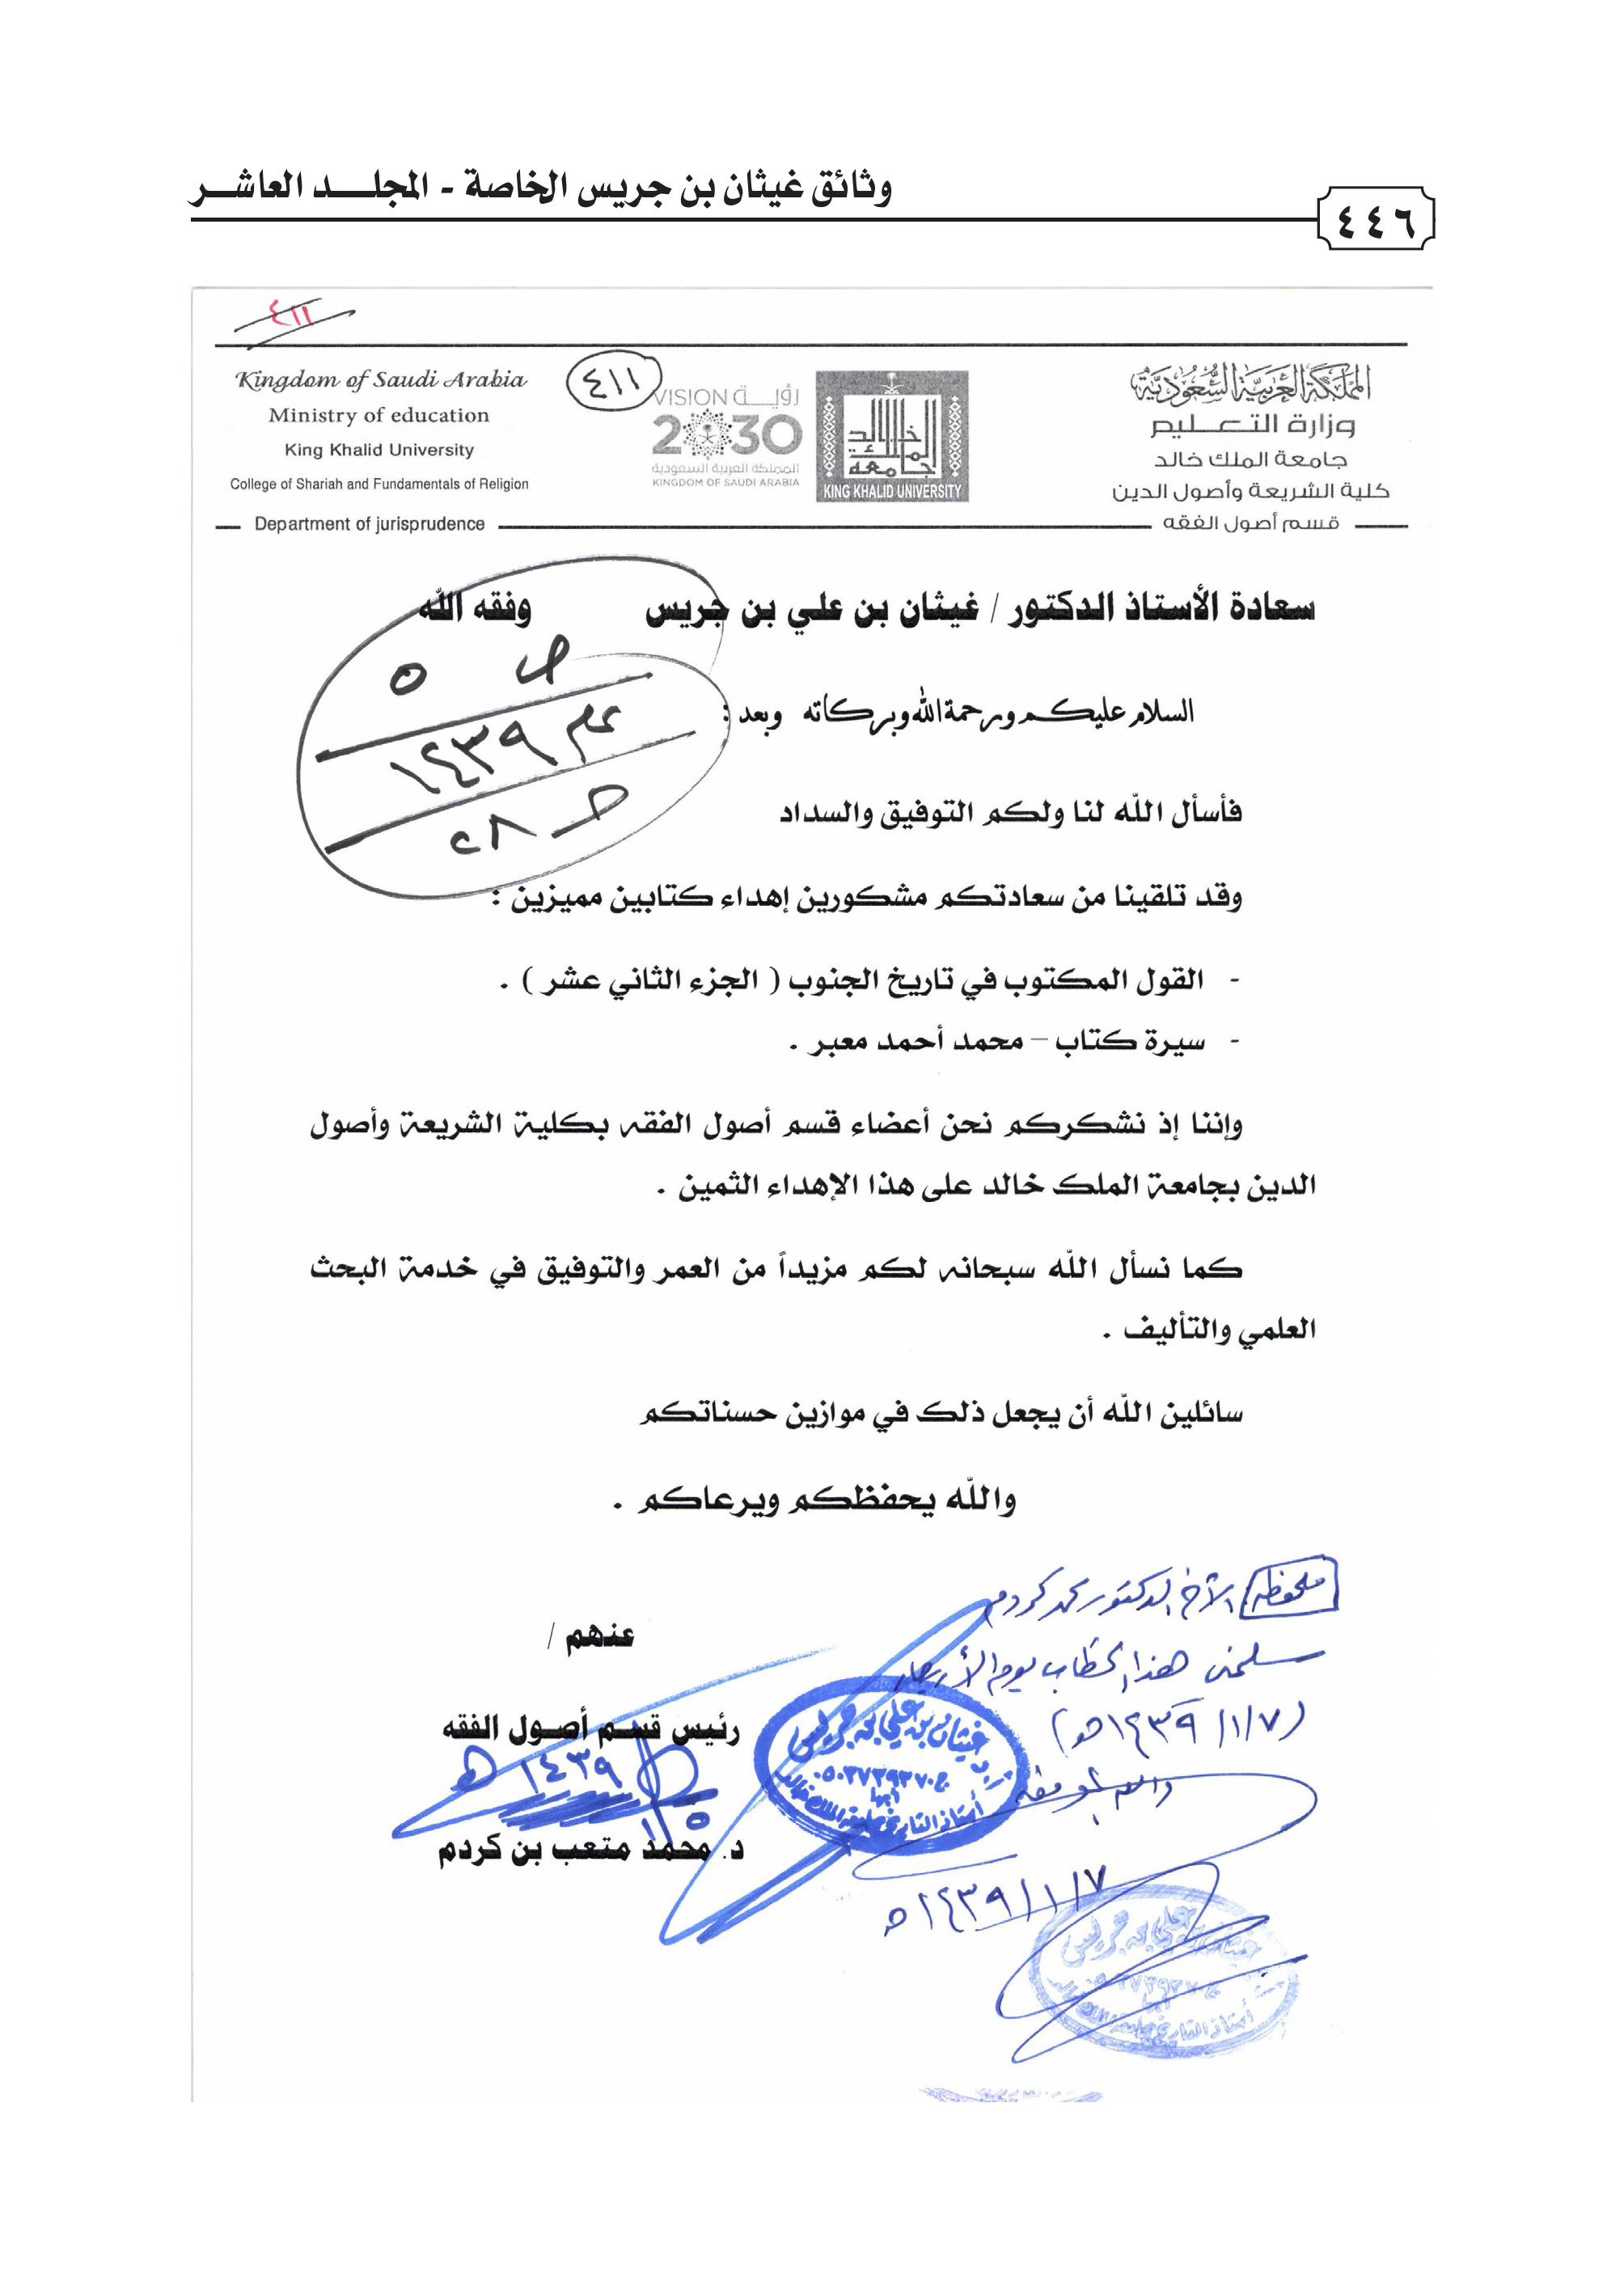 وثائق غيثان بن جريس الخاصة - المجلد العاشر
٤٤٦
٤١١
Kingdom of Saudi Arabia
Ministry of education
King Khalid University
College of Shariah and Fundamentals of Religion
Department of jurisprudence
٤١١
VISION رؤية
2030
المملكة العربية السعودية
KINGDOM OF SAUDI ARABIA
جامعة الملك خالد
KING KHALID UNIVERSITY
المملكة العربية السعودية
وزارة التعليم
جامعة الملك خالد
كلية الشريعة وأصول الدين
قسم أصول الفقه
سعادة الأستاذ الدكتور / غيثان بن علي بن جريس وفقه الله
٥
١٤٣٩
٢٨
السلام عليكم ورحمة الله وبركاته وبعد :
فأسأل الله لنا ولكم التوفيق والسداد
وقد تلقينا من سعادتكم مشكورين إهداء كتابين مميزين :
- القول المكتوب في تاريخ الجنوب ( الجزء الثاني عشر ) .
- سيرة كتاب – محمد أحمد معبر .
وإننا إذ نشكركم نحن أعضاء قسم أصول الفقه بكلية الشريعة وأصول
الدين بجامعة الملك خالد على هذا الإهداء الثمين .
كما نسأل الله سبحانه لكم مزيداً من العمر والتوفيق في خدمة البحث
العلمي والتأليف .
سائلين الله أن يجعل ذلك في موازين حسناتكم
والله يحفظكم ويرعاكم .
ملحوظة الأخ الدكتور محمد كردم
سلمني هذا الخطاب يوم الأربعاء
(١٤٣٩/١/٧هـ)
والله الموفق
١٤٣٩/١/٧هـ
عنهم /
رئيس قسم أصول الفقه
١٤٣٩ هـ
د. محمد متعب بن كردم
غيثان بن علي بن جريس
أبها
أستاذ التاريخ بجامعة الملك خالد
غيثان بن علي بن جريس
أبها
أستاذ التاريخ بجامعة الملك خالد